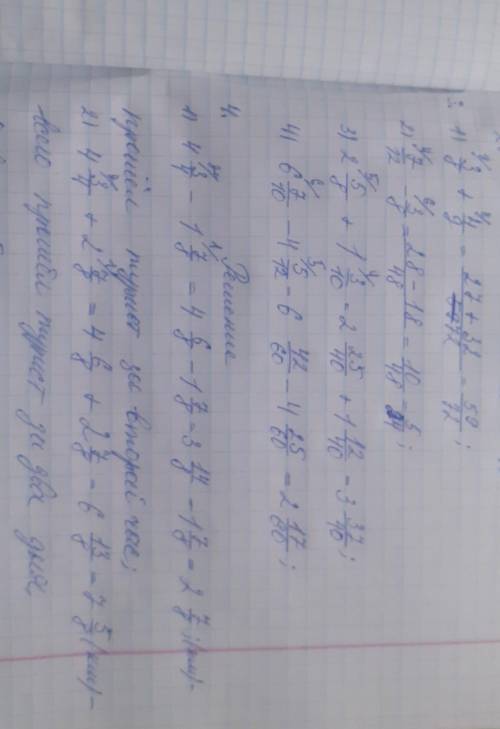 3. 1) 3/8 + 4/9 = (27 + 32)/72 = 59/72;
2) 7/12 - 3/8 = (28 - 18)/48 = 10/48 = 5/24;
3) 2 5/8 + 1 3/10 = 2 25/40 + 1 12/40 = 3 37/40;
4) 6 7/10 - 4 5/12 = 6 42/60 - 4 25/60 = 2 17/60;
4. Решение
1) 4 3/4 - 1 7/8 = 4 6/8 - 1 7/8 = 3 14/8 - 1 7/8 = 2 7/8 (км) -
прошёл турист за второй час;
2) 4 3/4 + 2 7/8 = 4 6/8 + 2 7/8 = 6 13/8 = 7 5/8 (км) -
всего прошёл турист за два